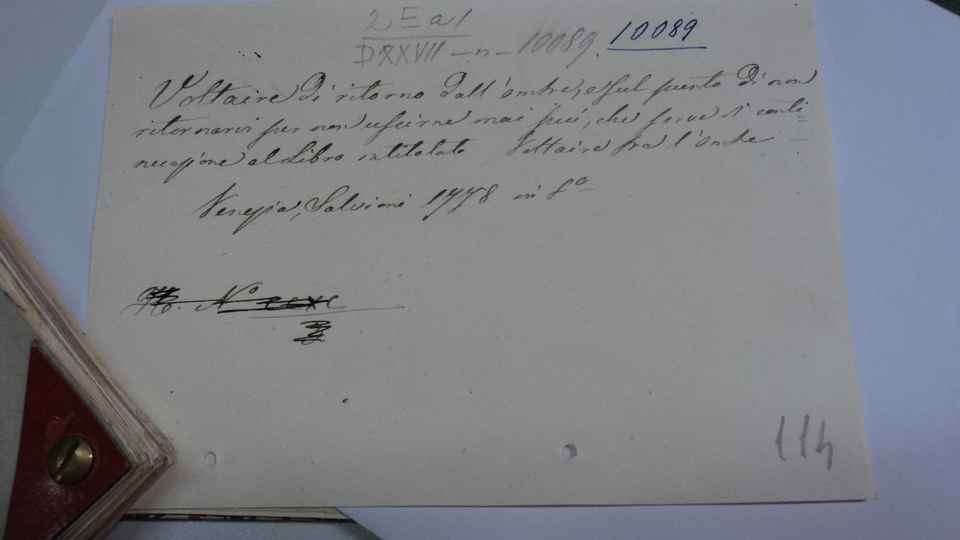 2 E a 1
DXXVII - n - 10089. 10089
Voltaire di ritorno dall'ombre, e sul punto di non
ritornarvi per non uscirne mai più, che serve di conti
nuazione al Libro intitolato Voltaire fra l'ombre
Venezia, Salvioni 1778 in 8º
Nº
114